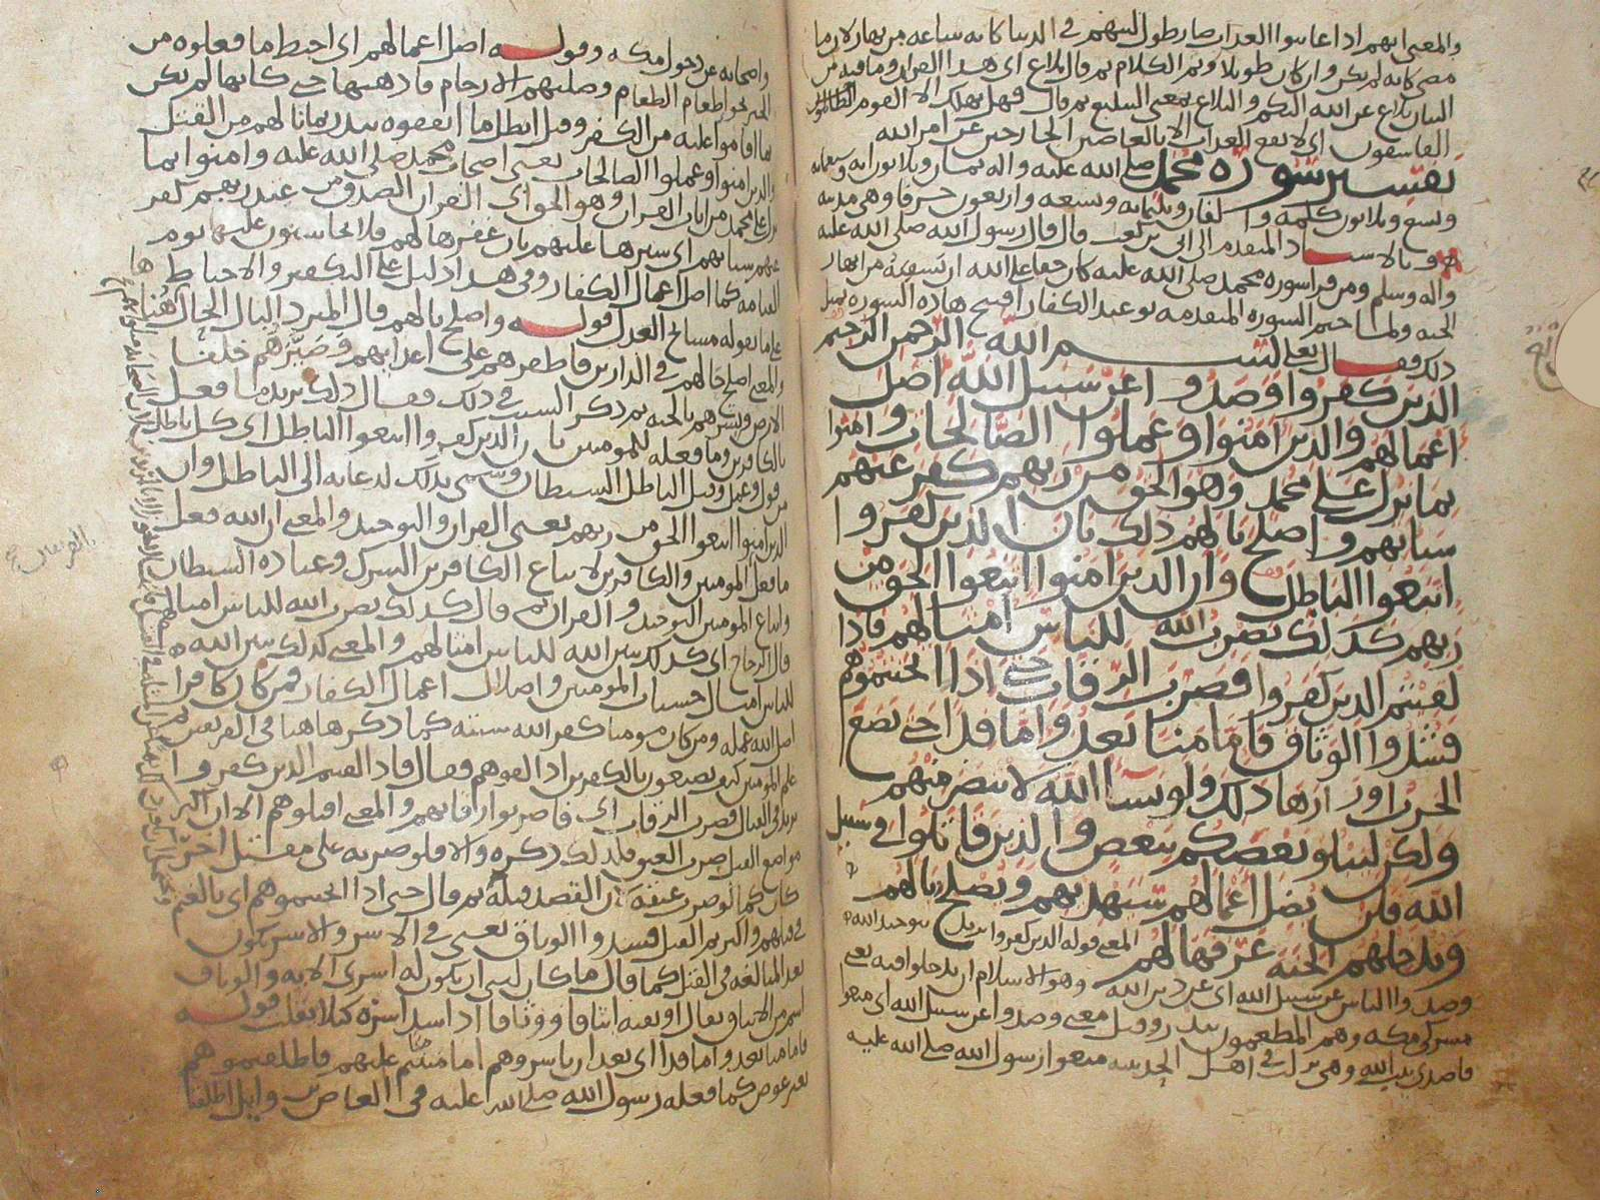 والمعنى انهم اذا عاينوا العذاب صار طول لبثهم فى الدنيا كانه ساعه من نهار لان ما
مضى كانه لم يكن وان كان طويلا وتم الكلام ثم قال بلاغ اى هذا القران وما فيه من
البيان بلاغ عن الله اليكم والبلاغ بمعنى التبليغ ثم قال فهل يهلك الا القوم
الفاسقون اى لا يقع العذاب الا بالعاصين الخارجين عن امر الله
تفسير سورة محمد صلى الله عليه واله ثمان وثلاثون ايه وخمسمايه
وتسع وثلاثون كلمه والفان وثلثمايه وتسعه واربعون حرفا وهى مدنيه
وبالاسناد المتقدم الى ابى بن كعب قال قال رسول الله صلى الله عليه
واله وسلم ومن قرا سوره محمد صلى الله عليه كان حقا على الله ان يسقيه من انهار
الجنه ولما ختم السوره المتقدمه بوعيد الكفار افتتح هاذه السوره بمثل
ذلك فقال تعالى بسم الله الرحمن الرحيم
الذين كفروا وصدوا عن سبيل الله اضل
اعمالهم والذين امنوا وعملوا الصالحات وامنوا
بما نزل على محمد وهو الحق من ربهم كفر عنهم
سياتهم واصلح بالهم ذلك بان الذين كفروا
اتبعوا الباطل وان الذين امنوا اتبعوا الحق من
ربهم كذلك يضرب الله للناس امثالهم فاذا
لقيتم الذين كفروا فضرب الرقاب حتى اذا اثخنتموهم
فشدوا الوثاق فاما منا بعد واما فدا حتى تضع
الحرب اوزارها ذلك ولو يشا الله لانتصر منهم
ولكن ليبلو بعضكم ببعض والذين قاتلوا فى سبيل
الله فلن يضل اعمالهم سيهديهم ويصلح بالهم
ويدخلهم الجنه عرفها لهم المعنى قوله الذين كفروا بتوحيد الله
وصدوا الناس عن سبيل الله اى عن دين الله وهو الاسلام ان يدخلوا فيه يعنى
مشركى مكه وهم المطعمون ببدر وقيل معنى وصدوا عن سبيل الله اى منعوا
قاصدى بيت الله وهى نزلت فى اهل الحديبيه منعوا رسول الله صلى الله عليه
واصحابه عن دخول مكه وقوله اضل اعمالهم اى احبط ما فعلوه من
الخير نحو اطعام الطعام وصلتهم الارحام فاذهبها حتى كانها لم تكن
بما اقاموا عليه من الكفر وقيل ابطل ما انفقوه ببدر بما نالهم من القتل
والذين امنوا وعملوا الصالحات يعنى اصحاب محمد صلى الله عليه وامنوا بما
نزل على محمد من ايات القران وهو الحق اى القران الصدق من عند ربهم كفر
عنهم سياتهم اى سترها عليهم بان غفرها لهم فلا يحاسبون عليها يوم
القيامه كما اضل اعمال الكفار وفى هذا دليل على التكفير والاحباط
على ما يقوله مشايخ العدل قوله واصلح بالهم قال المبرد البال الحال هاهنا
والمعنى اصلح حالهم فى الدارين فاظهرهم على اعدايهم وصيرهم خلفا
الارض وبشرهم بالجنه ثم ذكر السبب فى ذلك فقال ذلك يريد ما فعل
بالكافرين وما فعله للمومنين بان الذين كفروا اتبعوا الباطل اى كل باطل
من قول وعمل وقيل الباطل الشيطان وسمى بذلك لدعايه الى الباطل وان
الذين امنوا اتبعوا الحق من ربهم يعنى القران والتوحيد والمعنى ان الله فعل
ما فعل بالمومنين والكافرين لاتباع الكافرين الشرك وعباده الشيطان
واتباع المومنين التوحيد والقران ثم قال كذلك يضرب الله للناس امثالهم
قال الزجاج اى كذلك يبين الله للناس امثالهم والمعنى كذلك يبين الله
للناس امثال حسنات المومنين واضلال اعمال الكفار فمن كان كافرا
اضل الله عمله ومن كان مومنا كفر الله سيئته كما ذكرها هنا فى الفريقين ثم
علم المومنين كيف يصنعون بالكفرين اذا لقوهم فقال فاذا لقيتم الذين كفروا
يريد فى القتال فضرب الرقاب اى فاضربوا رقابهم والمعنى اقتلوهم الا ان اكثر
مواضع القتل ضرب العنق فلذلك ذكره والا فلو ضربه على مقتل اخر
كان كما لو ضرب عنقه لان القصد قتله ثم قال حتى اذا اثخنتموهم اى بالغتم
فى قتلهم واكثرتم القتل فشدوا الوثاق يعنى فى الاسر والاسر يكون
بعد المبالغه فى القتل كما قال ما كان لنبى ان يكون له اسرى الايه والوثاق
اسم من الايثاق ويقال اوثقه ايثاقا ووثاقا اذا شد اسره كيلا يفلت قوله
فاما منا بعد واما فدا اى بعد ان تاسروهم اما مننتم عليهم فاطلقتموهم
بغير عوض كما فعله رسول الله صلى الله عليه فى